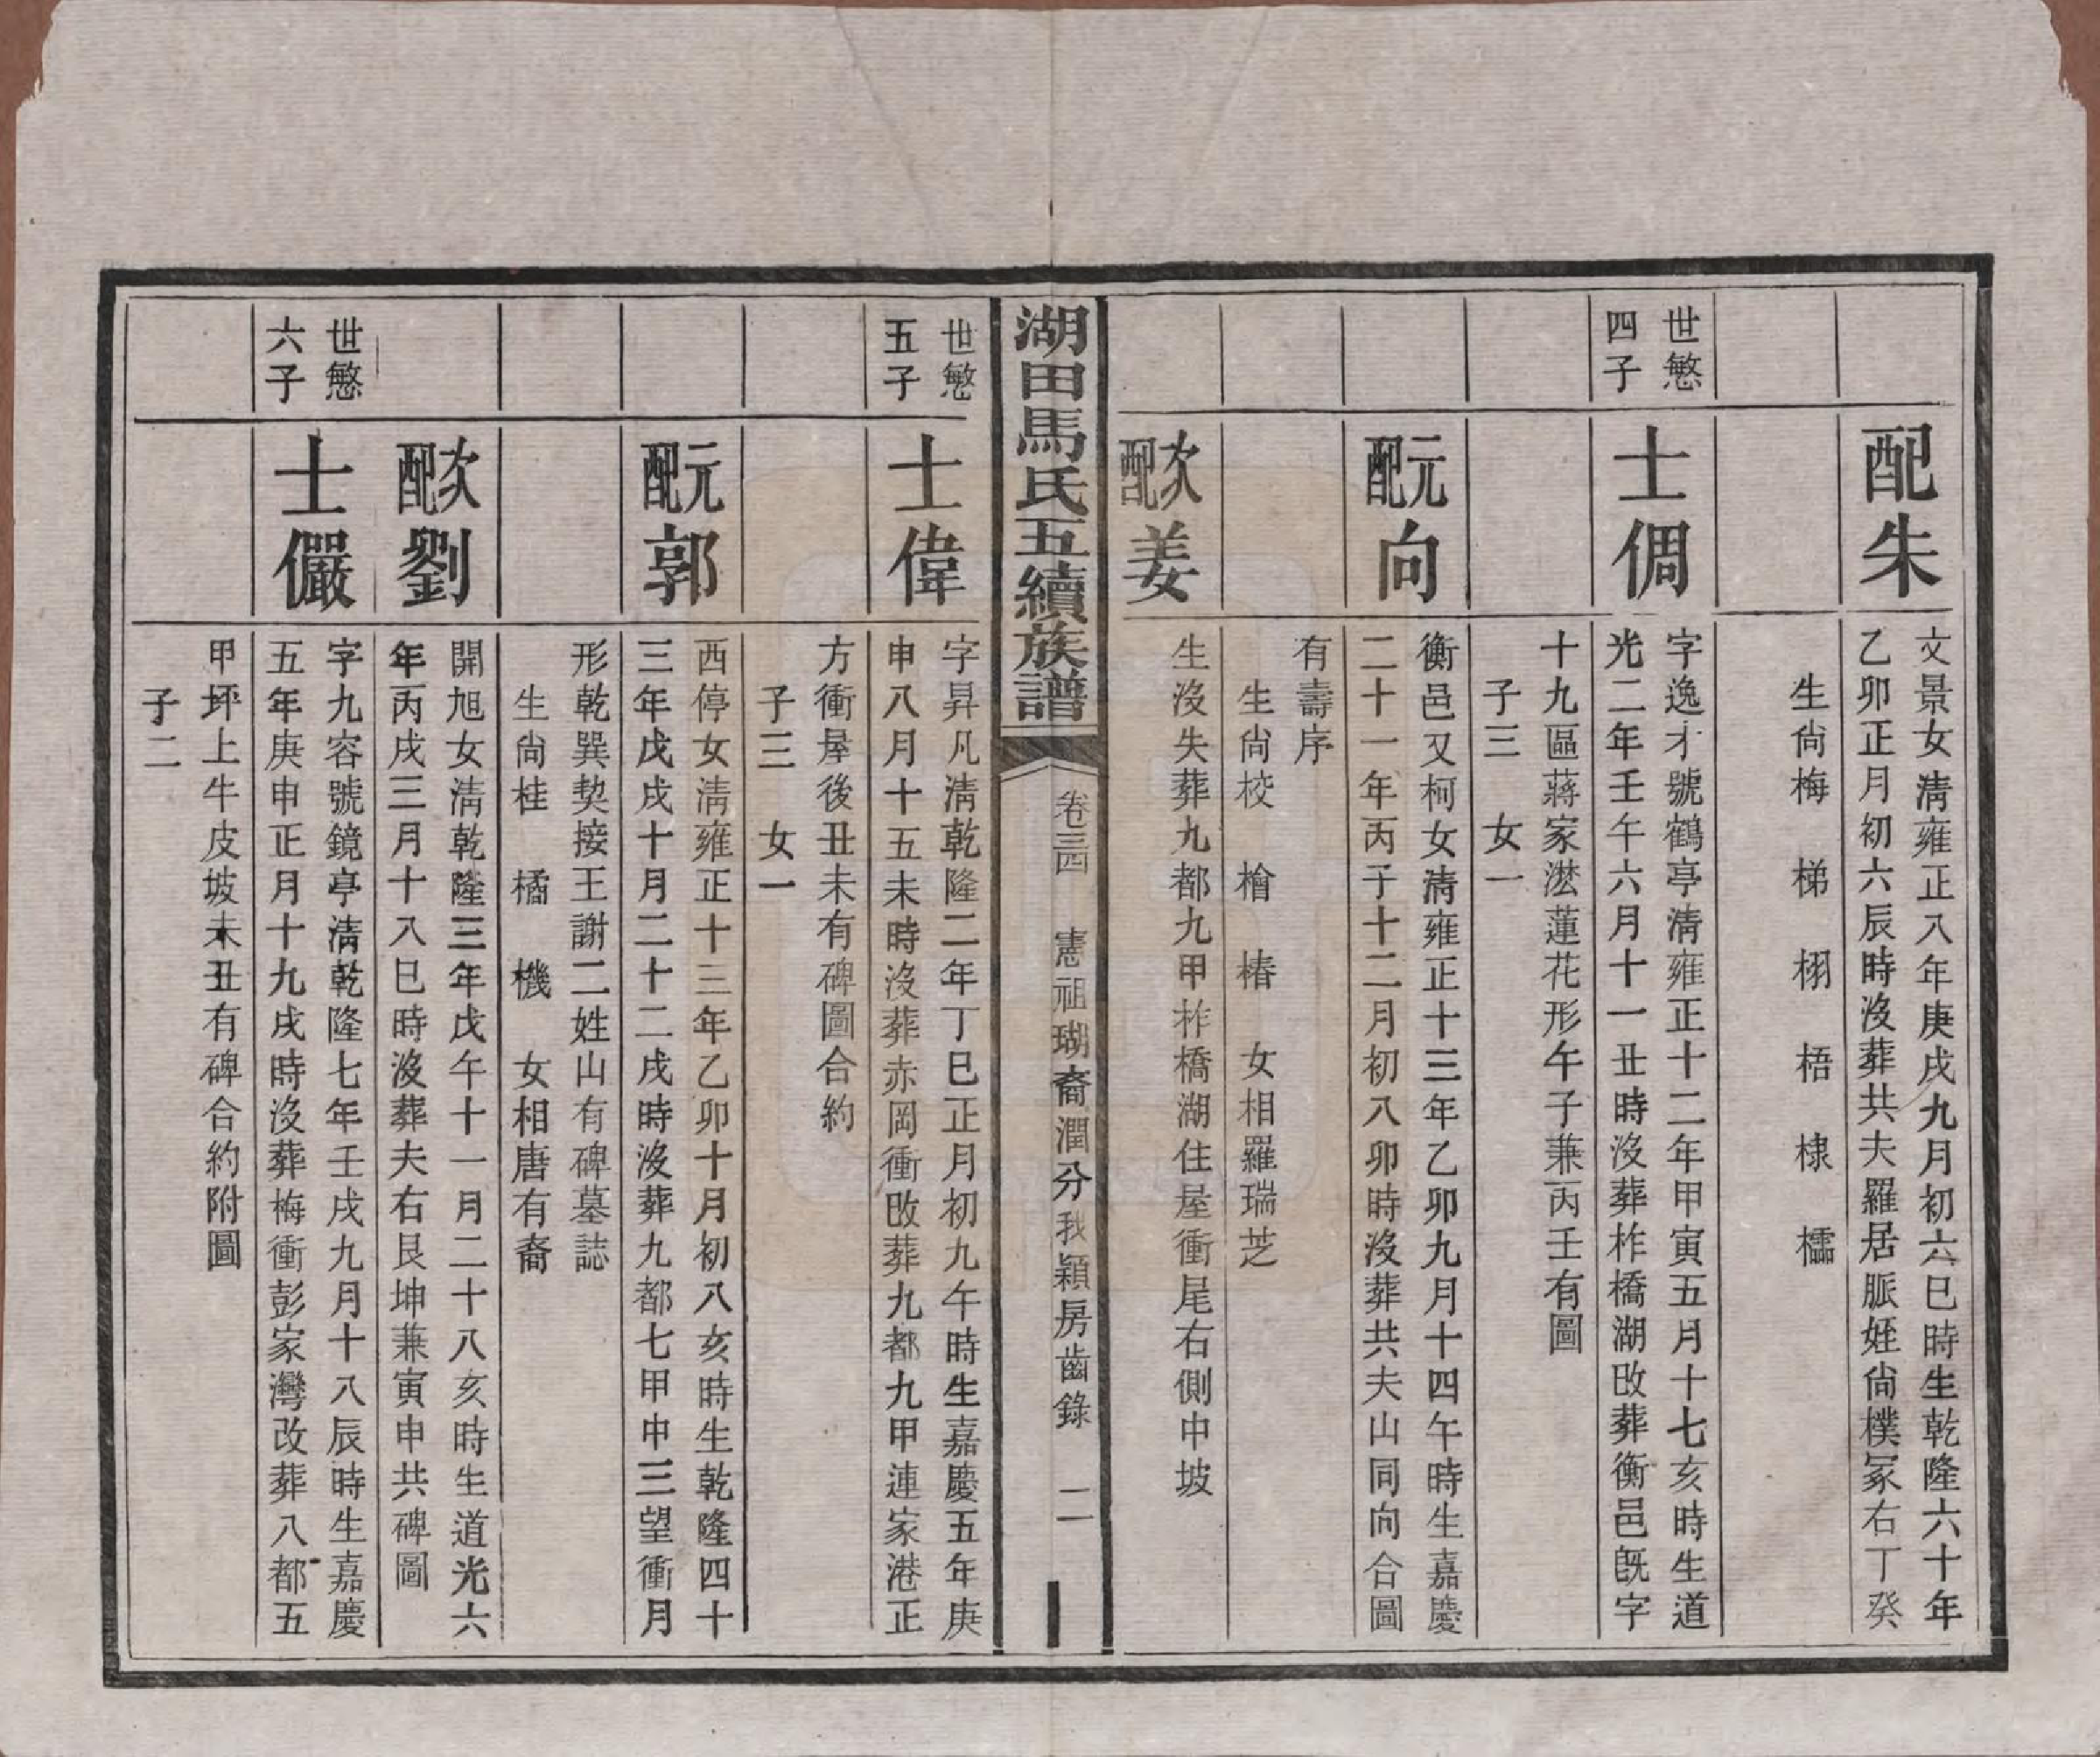 配朱
文景女淸雍正八年庚戌九月初六巳時生乾隆六十年
乙卯正月初六辰時沒葬共夫羅居脈姪尙樸冢右丁癸
生尙梅　梯　栩　梧　棣　檽
世慜
四子
士倜
字逸才號鶴亭淸雍正十二年甲寅五月十七亥時生道
光二年壬午六月十一丑時沒葬柞橋湖改葬衡邑旣字
十九區蔣家塋蓮花形午子兼丙壬有圖
子三　女一
元配向
衡邑又柯女淸雍正十三年乙卯九月十四午時生嘉慶
二十一年丙子十二月初八卯時沒葬共夫山同向合圖
有壽序
生尙校　檜　椿　女相羅瑞芝
次配姜
生沒失葬九都九甲柞橋湖住屋衝尾右側中坡
湖田馬氏五續族譜
卷三四　憲祖瑚裔潤分我穎房齒錄　二
世慜
五子
士偉
字昇凡淸乾隆二年丁巳正月初九午時生嘉慶五年庚
申八月十五未時沒葬赤岡衝改葬九都九甲連家港正
方衝屋後丑未有碑圖合約
子三　女一
元配郭
西停女淸雍正十三年乙卯十月初八亥時生乾隆四十
三年戊戌十月二十二戌時沒葬九都七甲中三望衝月
形乾巽契接王謝二姓山有碑墓誌
生尙桂　橘　機　女相唐有裔
次配劉
開旭女淸乾隆三年戊午十一月二十八亥時生道光六
年丙戌三月十八巳時沒葬夫右艮坤兼寅申共碑圖
世慜
六子
士儼
字九容號鏡亭淸乾隆七年壬戌九月十八辰時生嘉慶
五年庚申正月十九戌時沒葬梅衝彭家灣改葬八都五
甲坪上牛皮坡未丑有碑合約附圖
子二